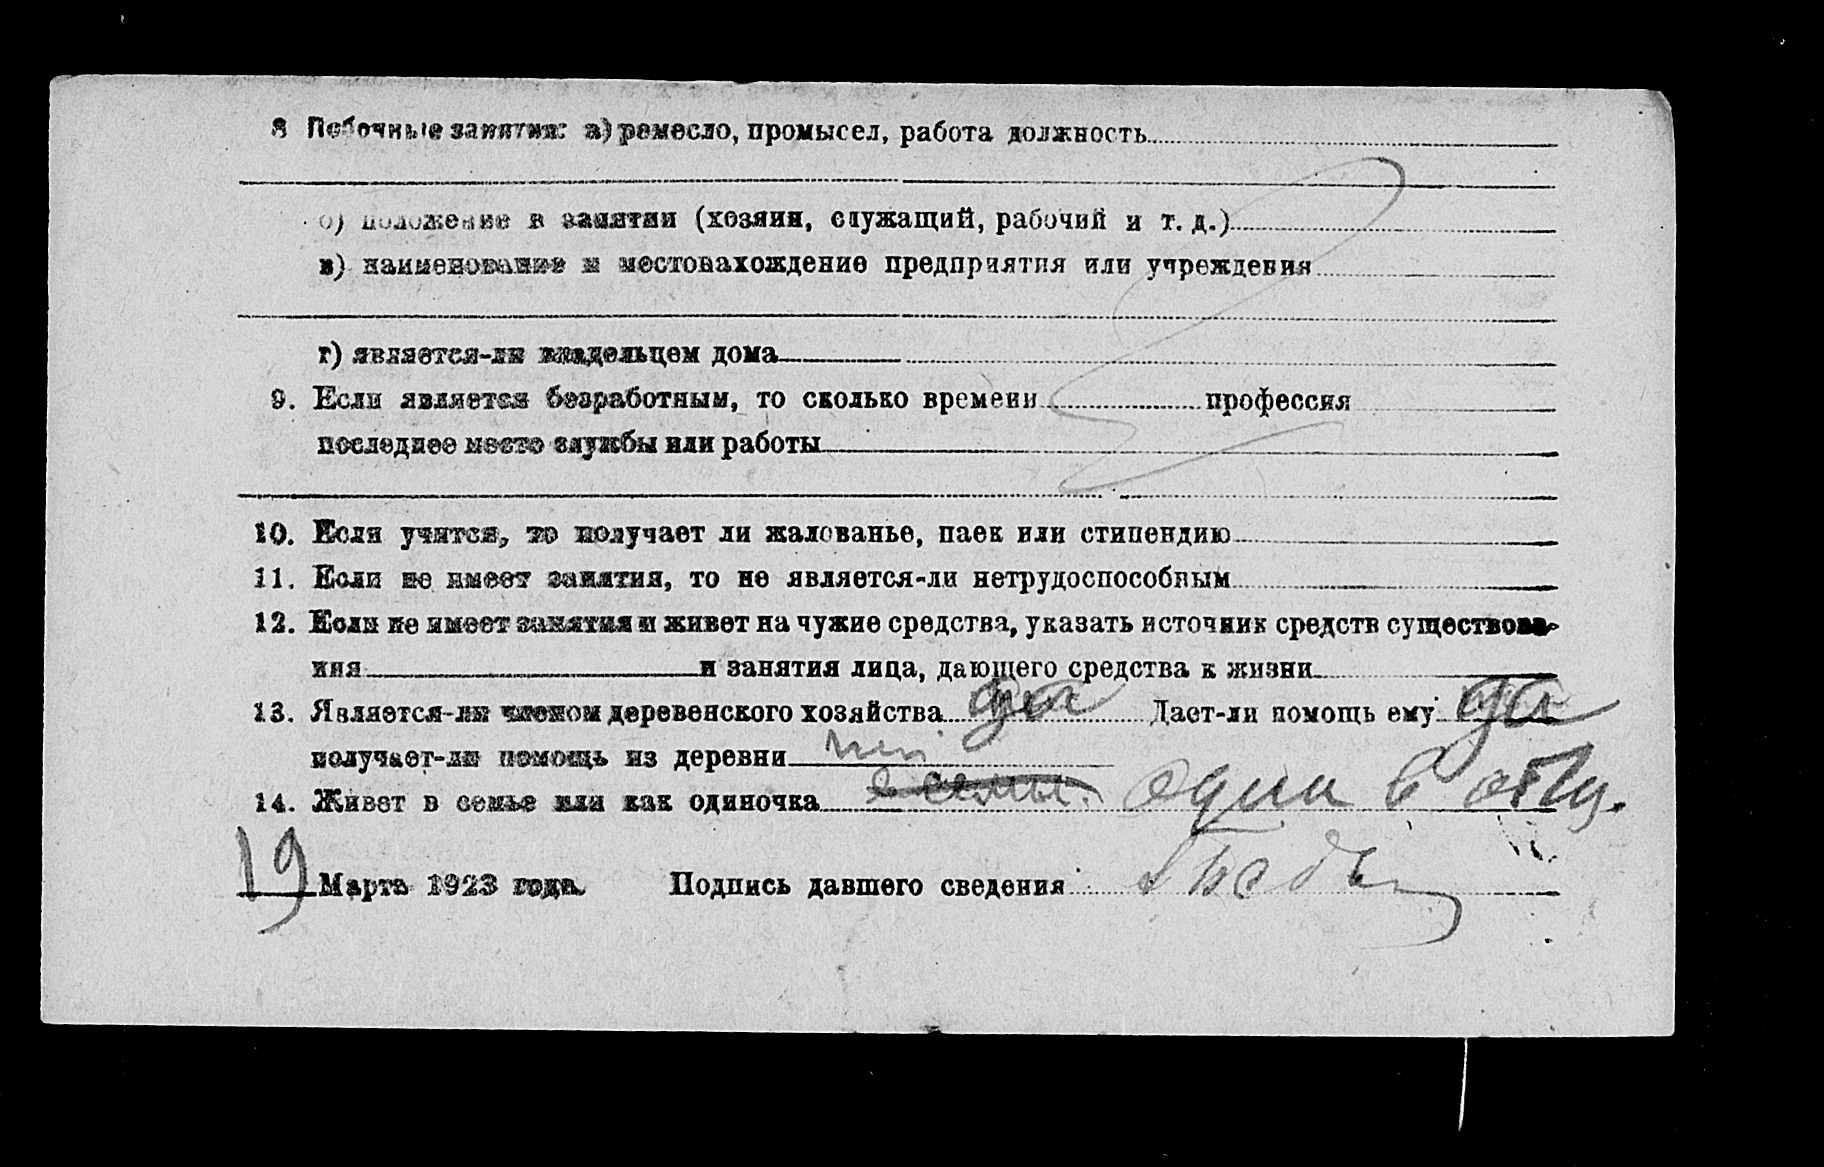 8 Побочные занятия: а) ремесло, промысел, работа должность
б) положение в занятии (хозяин, служащий, рабочий и т. д.)
в) наименование и местонахождение предприятия или учреждения
г) является-ли владельцем дома
9. Если является безработным, то сколько времени профессия
последнее место службы или работы
10. Если учится, то получает ли жалованье, паек или стипендию
11. Если не имеет занятия, то не является-ли нетрудоспособным
12. Если не имеет занятия и живет на чужие средства, указать источник средств существова-
ния и занятия лица, дающего средства к жизни
13. Является-ли членом деревенского хозяйства да Дает-ли помощь ему да
получает-ли помощь из деревни нет
14. Живет в семье или как одиночка один в
19 Марта 1923 года. Подпись давшего сведения